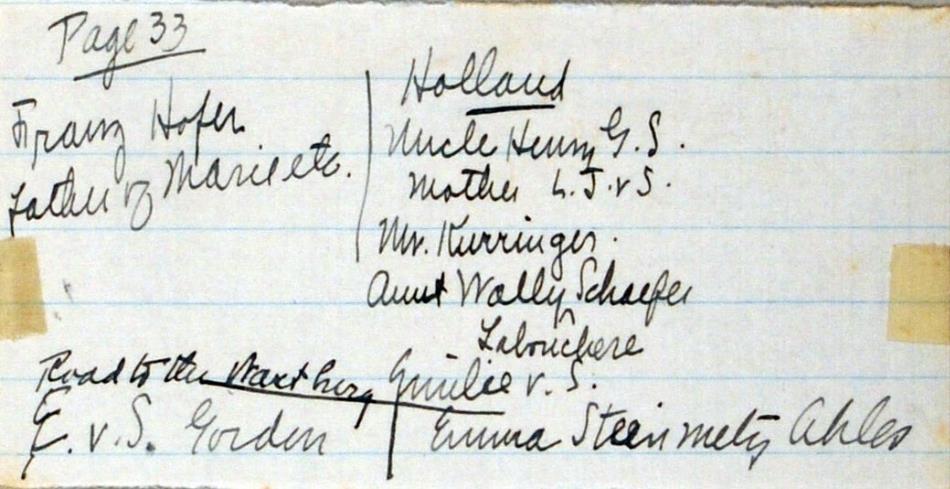 Page 33
Franz Hofer
father of Marie etc.
Holland
Uncle Henry G. S.
Mother L. J. v S.
Mr. Kurringer.
Aunt Wally Schaefer
Labouchere
Emilie v. S.
Road to the Wartburg
E. v. S. Gordon
Emma Steinmetz Ahles